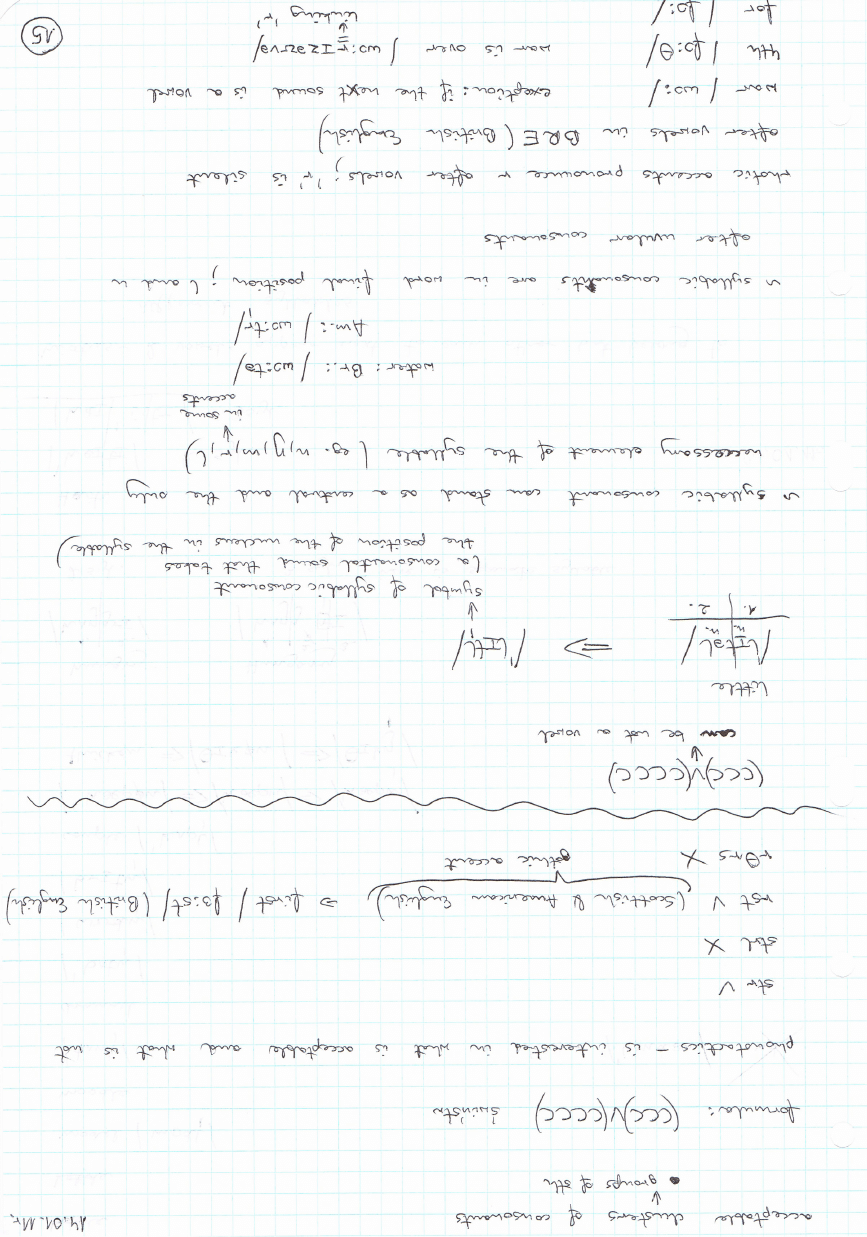 14.01.11r.
acceptable clusters of consonants
↓
groups of sth
formula: (CCC)V(CCCC)
phonotactics – is interested in what is acceptable and what is not
str V
stol X
rst V (Scottish & American English) ⇒ first /fɜ:st/ (British English)
rθrs X gothic accent
(CCC)V(CCCC)
↓
can be not a vowel
little
/'lɪtəl/ ⇒ /'lɪtl̩/
n. n.
1. 2.
↓
symbol of syllabic consonant
(a consonantal sound that takes
the position of the nucleus in the syllable)
~ syllabic consonant can stand as a central and the only
neccessary element of the syllable (eg. n, ŋ, m, r, l)
↓
in some
accents
water: Br.: /wɔ:tə/
Am.: /wɔ:tr̩/
~ syllabic consonants are in word final position; l and n
after uvular consonants
rhotic accents pronounce r after vowels; 'r' is silent
after vowels in BRE (British English)
war /wɔ:/ exception: if the next sound is a vowel
4th /fɔ:θ/ war is over /wɔ:rɪzəʊvə/
for /fɔ:/ ↓
linking 'r'
15